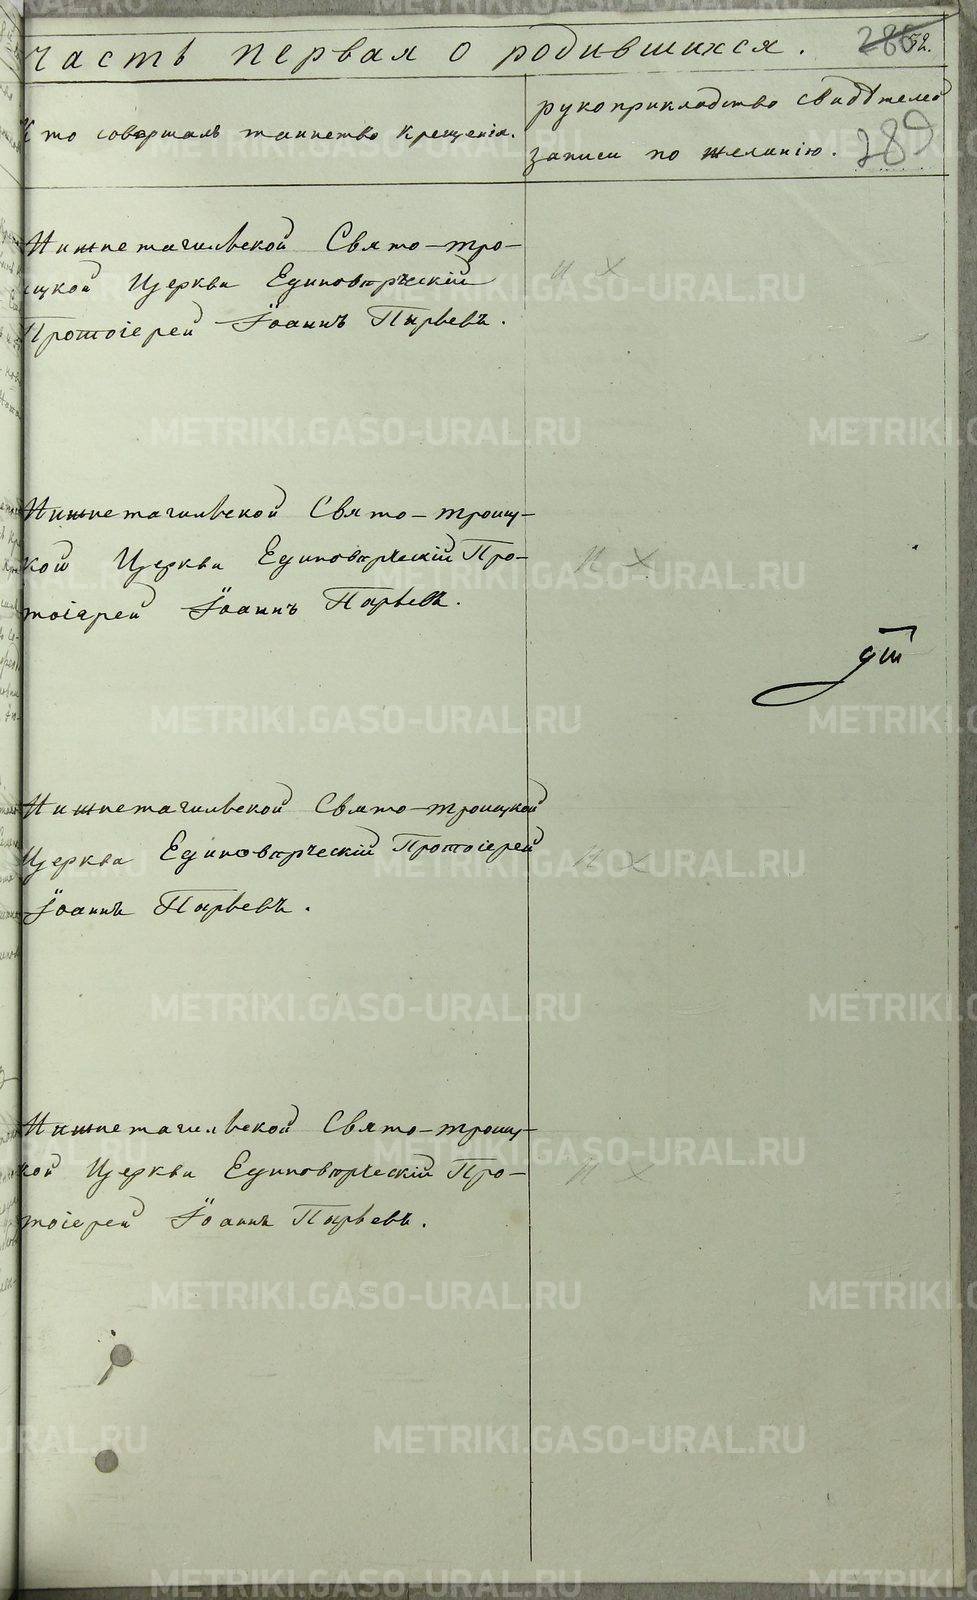 часть первая о родившихся. 286 52.
Кто совершалъ таинство крещенія.
рукоприкладство свидѣтелей
записи по желанію. 289
Нижнетагильской Свято-тро-
ицкой Церкви Единовѣрческій
Протоіерей Іоаннъ Пырьевъ.
и х
Нижнетагильской Свято-троиц-
кой Церкви Единовѣрческій Про-
тоіерей Іоаннъ Пырьевъ.
и х
Нижнетагильской Свято-троицкой
Церкви Единовѣрческій Протоіерей
Іоаннъ Пырьевъ.
и х
Нижнетагильской Свято-троиц-
кой Церкви Единовѣрческій Про-
тоіерей Іоаннъ Пырьевъ.
и х
METRIKI.GASO-URAL.RU